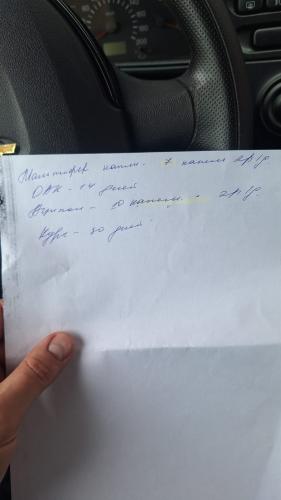 Мальтофер капли - 7 капель 2р/д.
ОАК - 14 дней
капель - 2р/д.
Курс - 30 дней